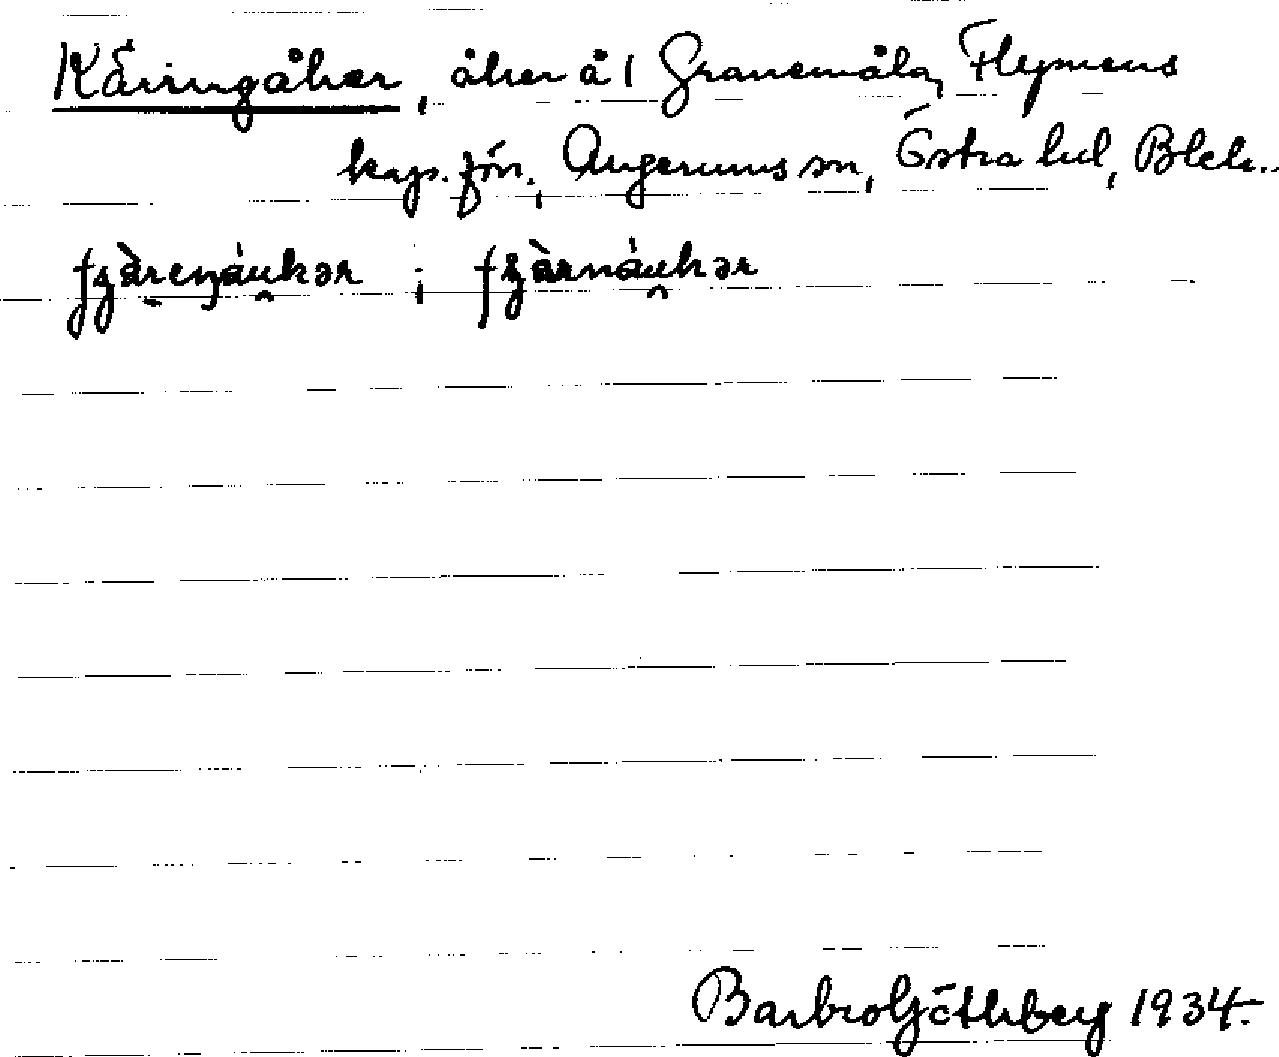 Käringåker, åker å 1 Granemåla, Flymens
kap.förs., Augerums sn, Östra hd, Blek..
ʃʒàreŋáukər ; ʃʒàrnáukər
Barbro Göthberg 1934.